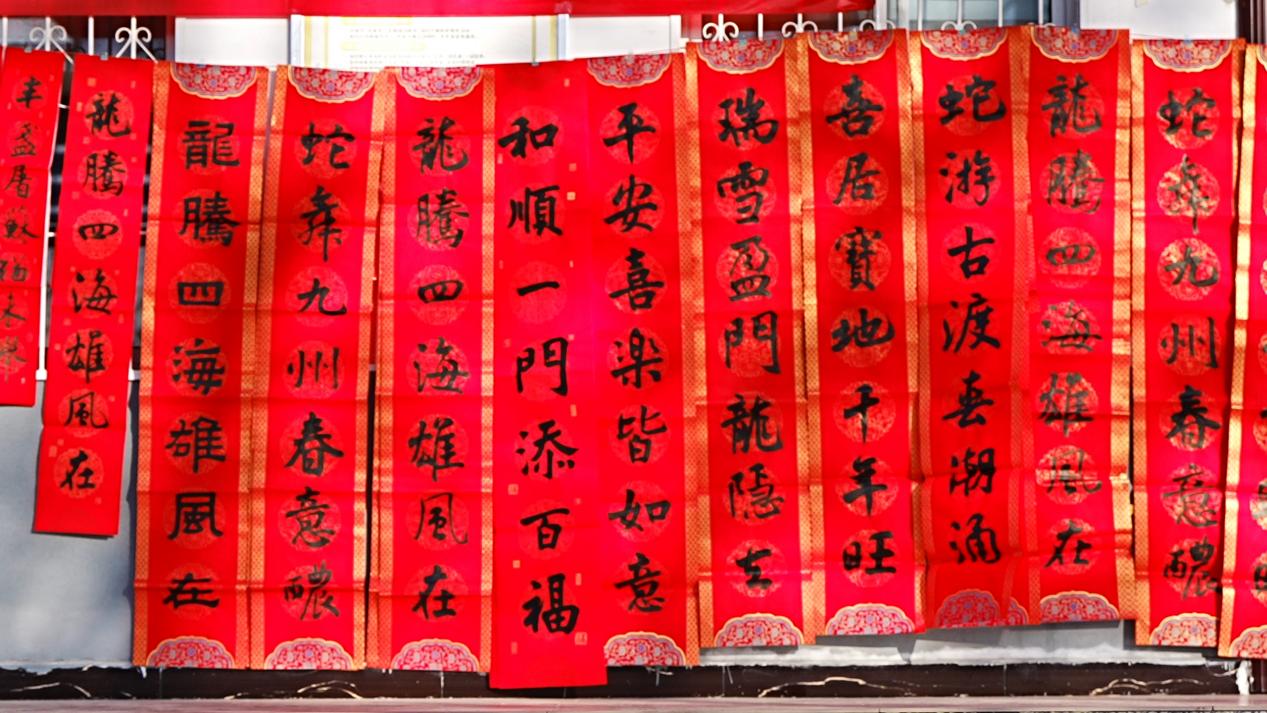 盈屠蘇
龍騰四海雄風在
龍騰四海雄風在
蛇舞九州春意醲
龍騰四海雄風在
和順一門添百福
平安喜楽皆如意
瑞雪盈門龍隱去
喜居寶地千年旺
蛇游古渡春潮涌
龍騰四海雄風在
蛇舞九州春意醲